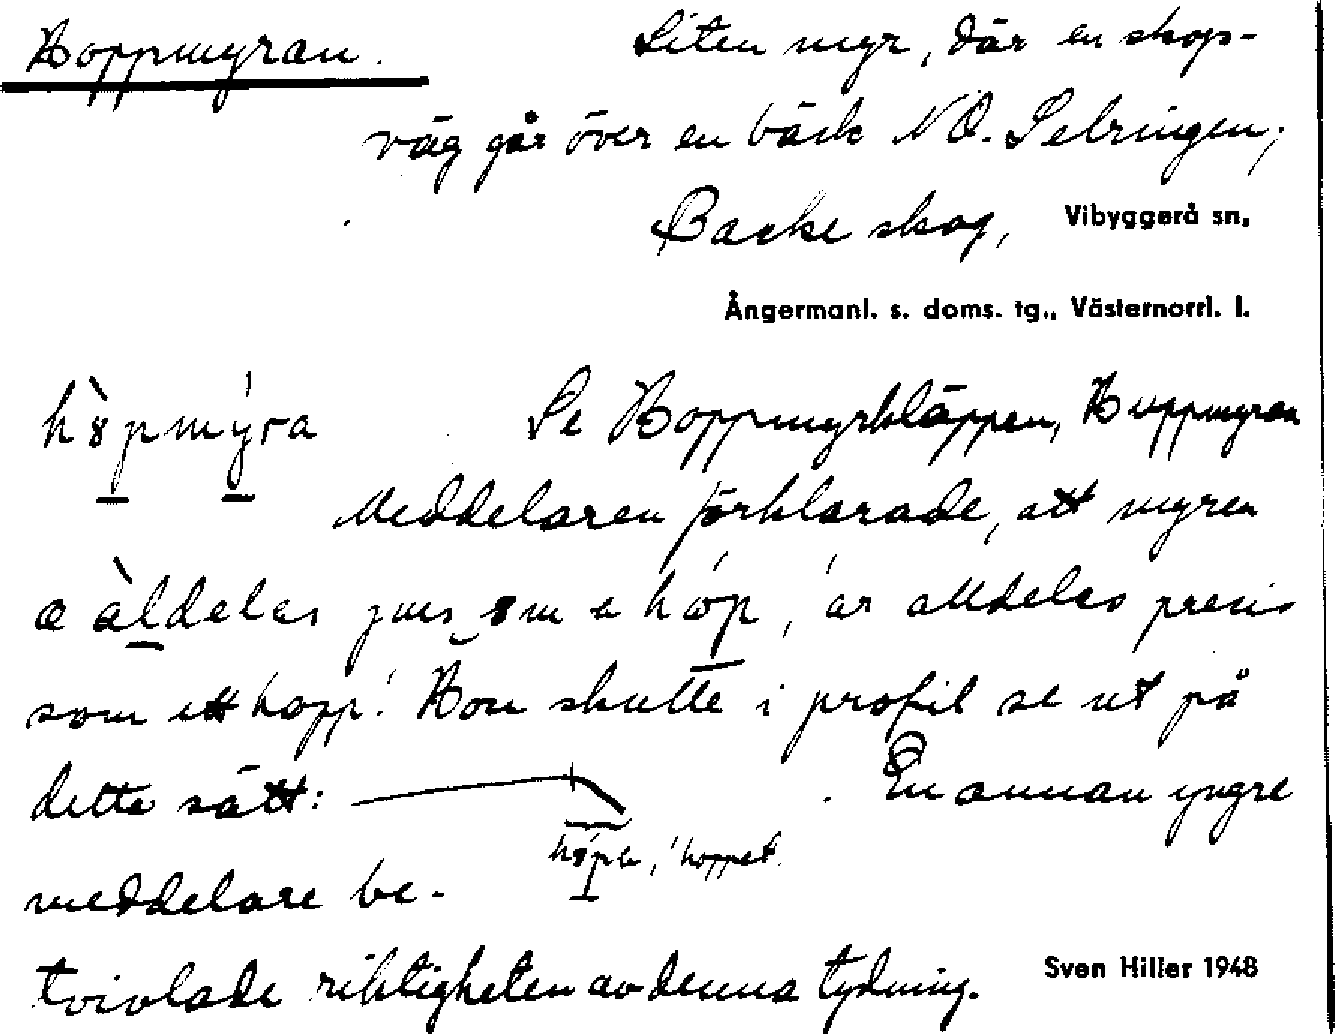 Hoppmyran.
Liten myr, där en skogs-
väg går över en bäck NO. Selringen,
Backe skog, Vibyggerå sn,
Ångermanl. s. doms. tg., Västernorrl. l.
Se Hoppmyrkläppen, Hoppmyran
Meddelaren förklarade, att myren
æ àldeles som e hop, 'är alldeles precis
som ett hopp'. Hon skulle i profil se ut på
dette sätt: En annan yngre
'hoppet'.
meddelare be-
tvivlade riktigheten av denna tydning.
Sven Hiller 1948